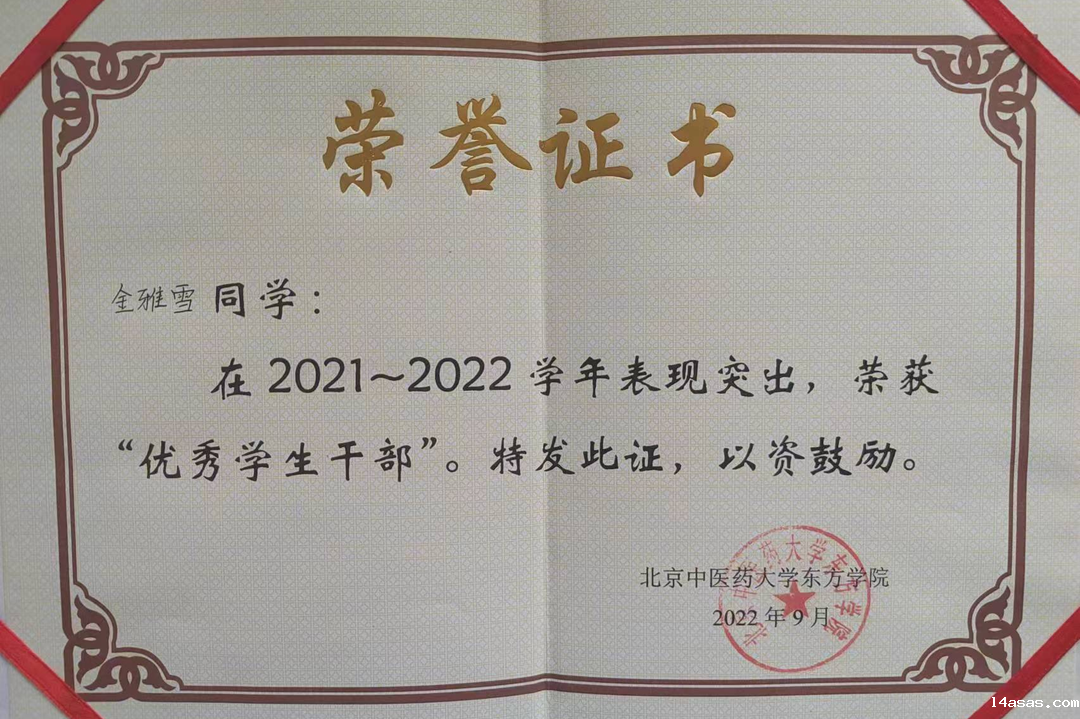 荣誉证书
金雅雪 同学：
在 2021~2022 学年表现突出，荣获
“优秀学生干部”。特发此证，以资鼓励。
北京中医药大学东方学院
2022 年 9 月
北京中医药大学东方学院
14asas.com